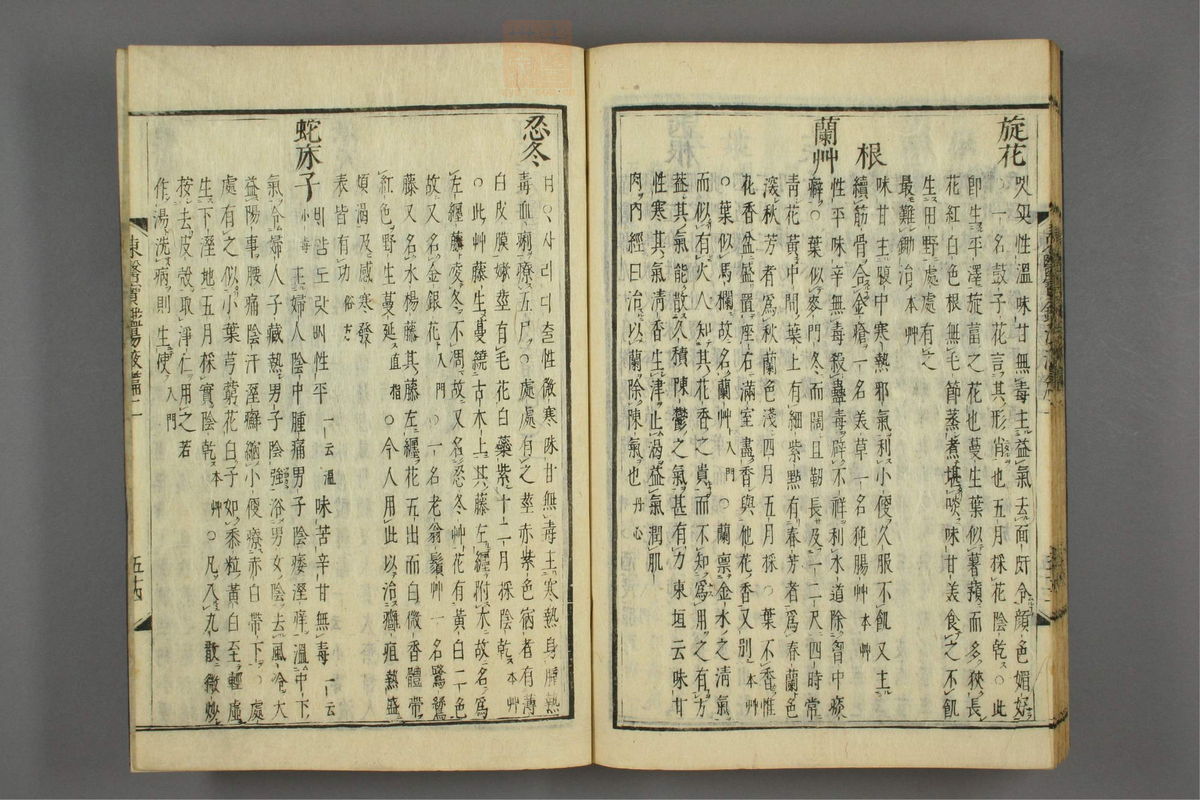 旋花
性溫味甘無毒主益氣去面皯令顏色媚好
○一名鼓子花言其形肖也五月採花陰乾○此
即生平澤旋葍之花也蔓生葉似薯蕷而多狹長
花紅白色根無毛節蒸煮堪啖味甘美食之不飢
生田野處處有之
最難鋤治 本艸
根
味甘主腹中寒熱邪氣利小便久服不飢又主
續筋骨合金瘡一名美草一名㹠腸艸 本艸
蘭艸
性平味辛無毒殺蠱毒辟不祥利水道除胷中痰
癖○葉似麥門冬而闊且韌長及一二尺四時常
青花黃中間葉上有細紫點有春芳者爲春蘭色
深秋芳者爲秋蘭色淺四月五月採○葉不香惟
花香盆盛置座右滿室盡香與他花香又別 本艸
○葉似馬欄故名蘭艸 入門 ○蘭禀金水之淸氣
而似有火人知其花香之貴而不知爲用之有方
盖其氣能散久積陳鬱之氣甚有力東垣云味甘
性寒其氣淸香生津止渴益氣潤肌
肉內經曰治以蘭除陳氣也 丹心
忍冬
性微寒味甘無毒主寒熱身腫熱
毒血痢療五尸○處處有之莖赤紫色宿者有薄
白皮膜嫩莖有毛花白蘂紫十二月採陰乾 本艸
○此艸藤生蔓繞古木上其藤左纏附木故名爲
左纏藤凌冬不凋故又名忍冬艸花有黃白二色
故又名金銀花 入門 ○一名老翁鬚艸一名鷺鷥
藤又名水楊藤其藤左纏花五出而白微香體帶
紅色野生蔓延 直指 ○今人用此以治癰疽熱盛
煩渴及感寒發
表皆有功 俗方
蛇床子
性平 一云溫 味苦辛甘無毒 一云
小毒 主婦人陰中腫痛男子陰痿溼痒溫中下
氣令婦人子藏熱男子陰強浴男女陰去風冷大
益陽事腰痛陰汗溼癬縮小便療赤白帶下○處
處有之似小葉芎藭花白子如黍粒黃白至輕虛
生下溼地五月採實陰乾 本艸 ○凡入丸散微炒
按去皮殼取淨仁用之若
作湯洗病則生使 入門
東醫寶鑑湯液篇二
五十四